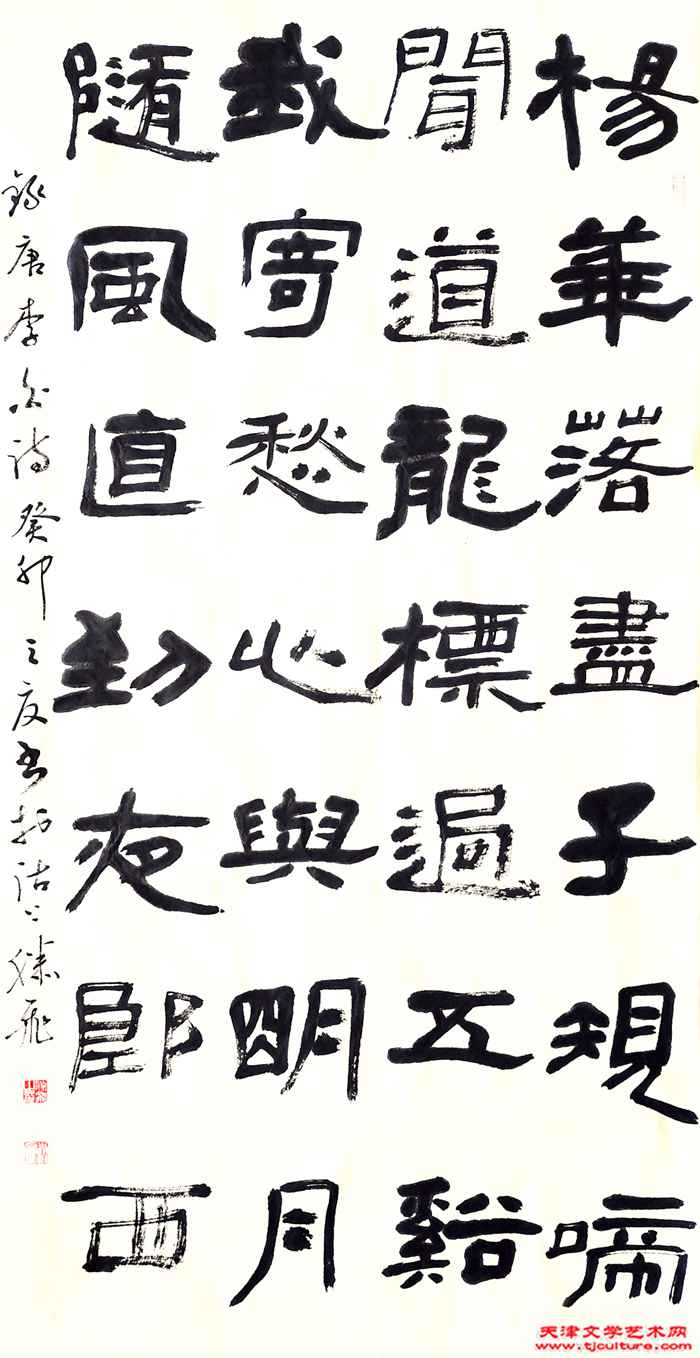 楊華落盡子規啼
聞道龍標過五谿
我寄愁心與明月
隨風直到夜郎西
錄唐李白詩癸卯之夏書於沽上飛
天津文学艺术网
www.tjculture.com